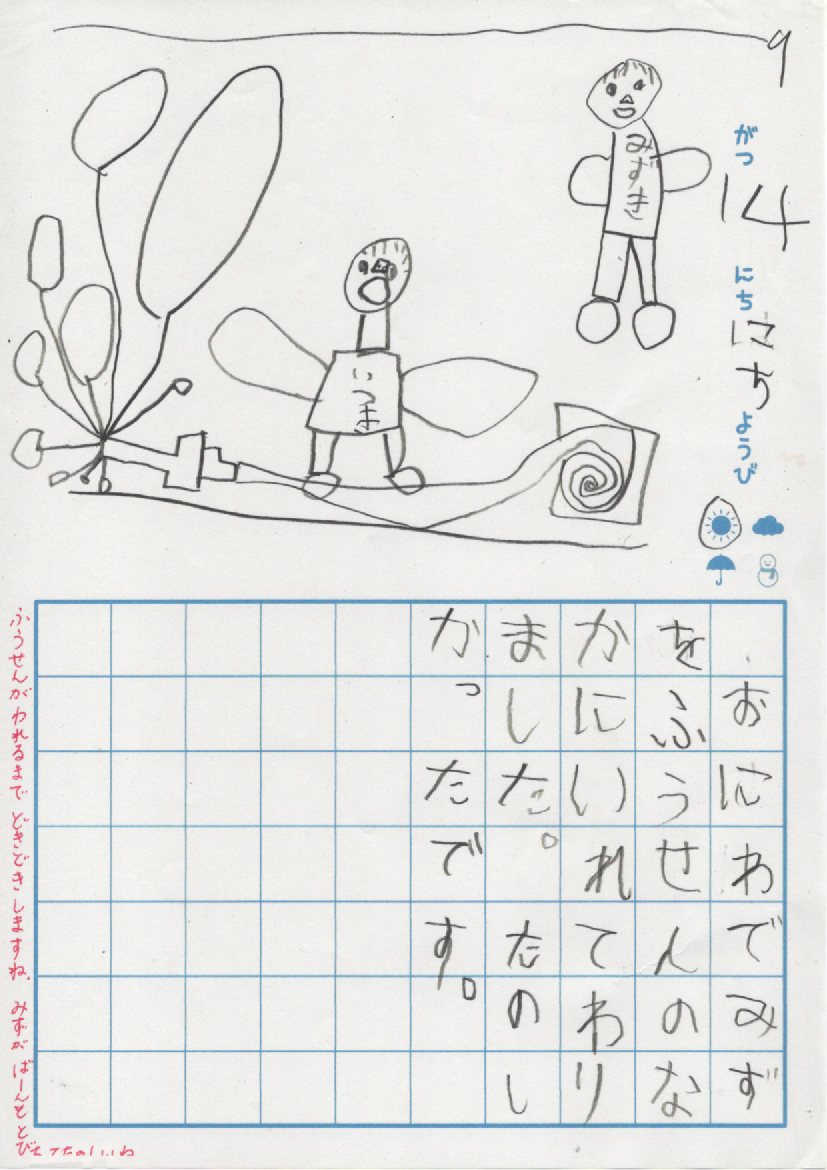 9
がつ
14
にち
にち
ようび
みずき
いつき
おにわでみず
をふうせんのな
かにいれてわり
ました。たのし
かったです。
ふうせんがわれるまでどきどきしますね。みずがばーんととび
ちってたのしいね